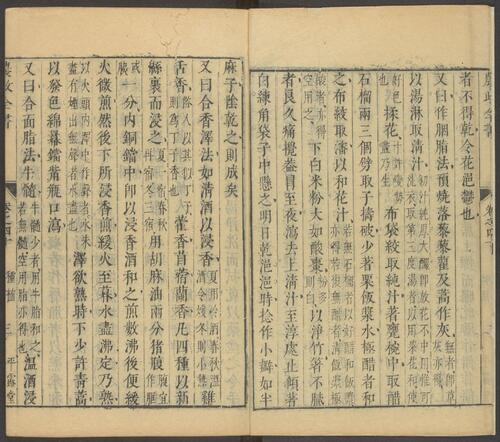 者不得乾令花浥鬱也
又曰作胭脂法預燒落藜藜藋及蒿作灰無者即草灰亦得
以湯淋取清汁初汁純厚大釅即放花不中用惟可洗衣取第三度湯者以用揉花和使
好色揉花十許遍勢盡乃生布袋絞取純汁著甕椀中取醋
石榴兩三個劈取子擣破少著粟飯漿水極酸者和
之布絞取瀋以和花汁若無石榴者以好醋和飯漿亦得若復無醋者清飯漿極
酸者亦得空用之下白米粉大如酸棗粉多則白以淨竹箸不膩
者良久痛攪蓋冒至夜瀉去上清汁至淳處止傾著
白練角袋子中懸之明日乾浥浥時捻作小瓣如半
麻子陰乾之則成矣
又曰合香澤法如清酒以浸香夏用冷酒春秋溫酒令煖冬則小熱雞
舌香俗人以其似丁子故為丁子香也藿香苜蓿蘭香凡四種以新
綿裹而浸之夏一宿春秋再宿冬三宿用胡麻油兩分猪
一分內銅鐺中即以浸香酒和之煎數沸後便緩
火微煎然後下所浸香煎緩火至暮水盡沸定乃熟
以火頭內澤中作聲者水未盡有煙出無聲者水盡也澤欲熟時下少許青蒿
以發色綿羃鐺觜瓶口瀉
又曰合面脂法牛髓牛髓少者用牛脂和之若無髓空用脂亦得也溫酒浸
農政全書 卷之四十 種植 三 平露堂